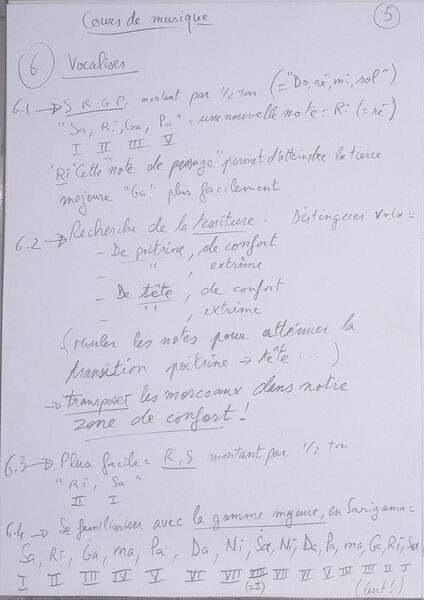 Cours de musique
5
6 Vocalises
6.1 → S R G P, montant par 1/2 ton (="Do, ré, mi, sol")
"Sa, Ri, Ga, Pa" = une nouvelle note = Ri (= ré)
I II III V
"Ri" Cette "note de passage" permet d'atteindre la tierce
majeure "Ga" plus facilement
6.2 → Recherche de la tessiture - Distinguer voix =
- De poitrine, de confort
- " , extrême
- De tête, de confort
- " , extrême
(rouler les notes pour atténuer la
transition poitrine → tête ...)
→ transposer les morceaux dans notre
zone de confort !
6.3 → Plus facile = R, S montant par 1/2 ton
"Ri, Sa"
II I
6.4 → Se familiariser avec la gamme majeure, en Sarigama =
Sa, Ri, Ga, ma, Pa, Da, Ni, Sa, Ni, Da, Pa, ma, Ga, Ri, Sa
I II III IV V VI VII VIII VII VI V IV III II I
(=I) (lent !)